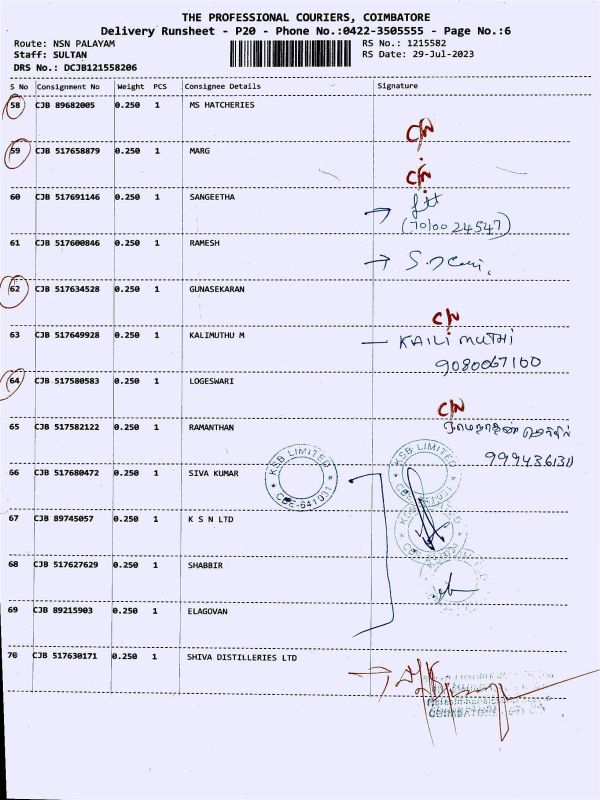 THE PROFESSIONAL COURIERS, COIMBATORE
Delivery Runsheet - P20 - Phone No.:0422-3505555 - Page No.:6
Route: NSN PALAYAM
RS No.: 1215582
Staff: SULTAN
RS Date: 29-Jul-2023
DRS No.: DCJB121558206
S No Consignment No Weight PCS Consignee Details Signature
58 CJB 89682005 0.250 1 MS HATCHERIES
C/N
59 CJB 517658879 0.250 1 MARG
C/N
60 CJB 517691146 0.250 1 SANGEETHA
(7010024547)
61 CJB 517600846 0.250 1 RAMESH
62 CJB 517634528 0.250 1 GUNASEKARAN
C/N
63 CJB 517649928 0.250 1 KALIMUTHU M
9080067100
64 CJB 517580583 0.250 1 LOGESWARI
C/N
65 CJB 517582122 0.250 1 RAMANTHAN
66 CJB 517680472 0.250 1 SIVA KUMAR
KSB LIMITED
CBE-641031
KSB LIMITED
67 CJB 89745057 0.250 1 K S N LTD
68 CJB 517627629 0.250 1 SHABBIR
69 CJB 89215903 0.250 1 ELAGOVAN
70 CJB 517630171 0.250 1 SHIVA DISTILLERIES LTD
COIMBATORE